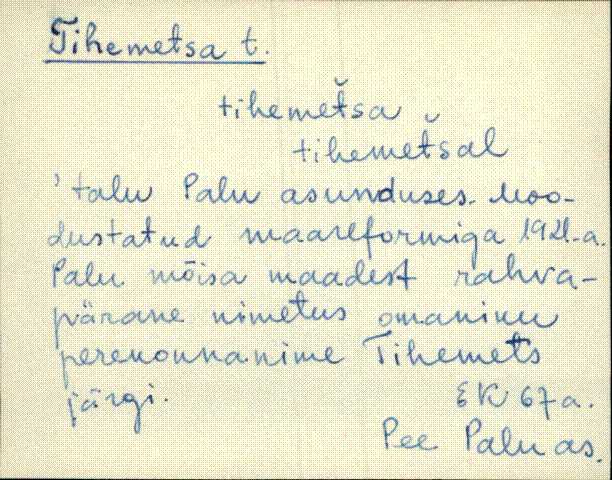 Tihemetsa t.
tihemet̆sa
tihemet̆sal
'talu Palu asunduses. Moo-
dustatud maareformiga 1921.a.
Palu mõisa maadest rahva-
pärane nimetus omaniku
perekonnanime Tihemets
järgi. EK 67 a.
Pee Palu as.